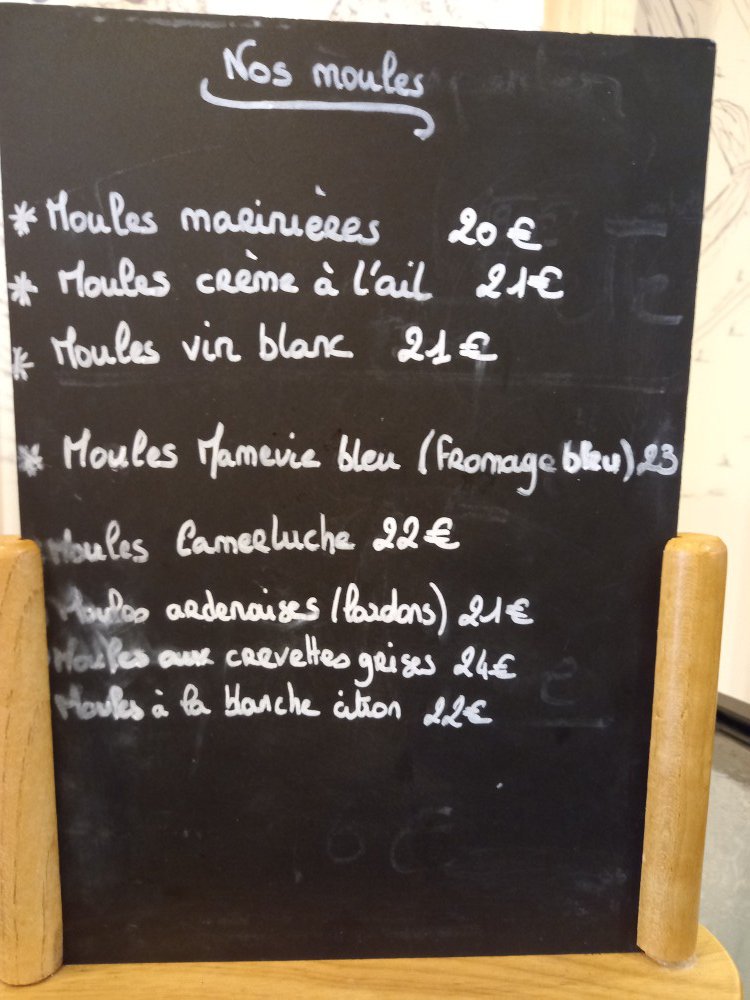 Nos moules
* Moules marinières 20 €
* Moules crème à l'ail 21€
* Moules vin blanc 21€
* Moules Mamevie bleu (Fromage bleu) 23
Moules Camerluche 22€
Moules ardenaises (lardons) 21€
Moules aux crevettes grises 24€
Moules à la blanche citron 22€